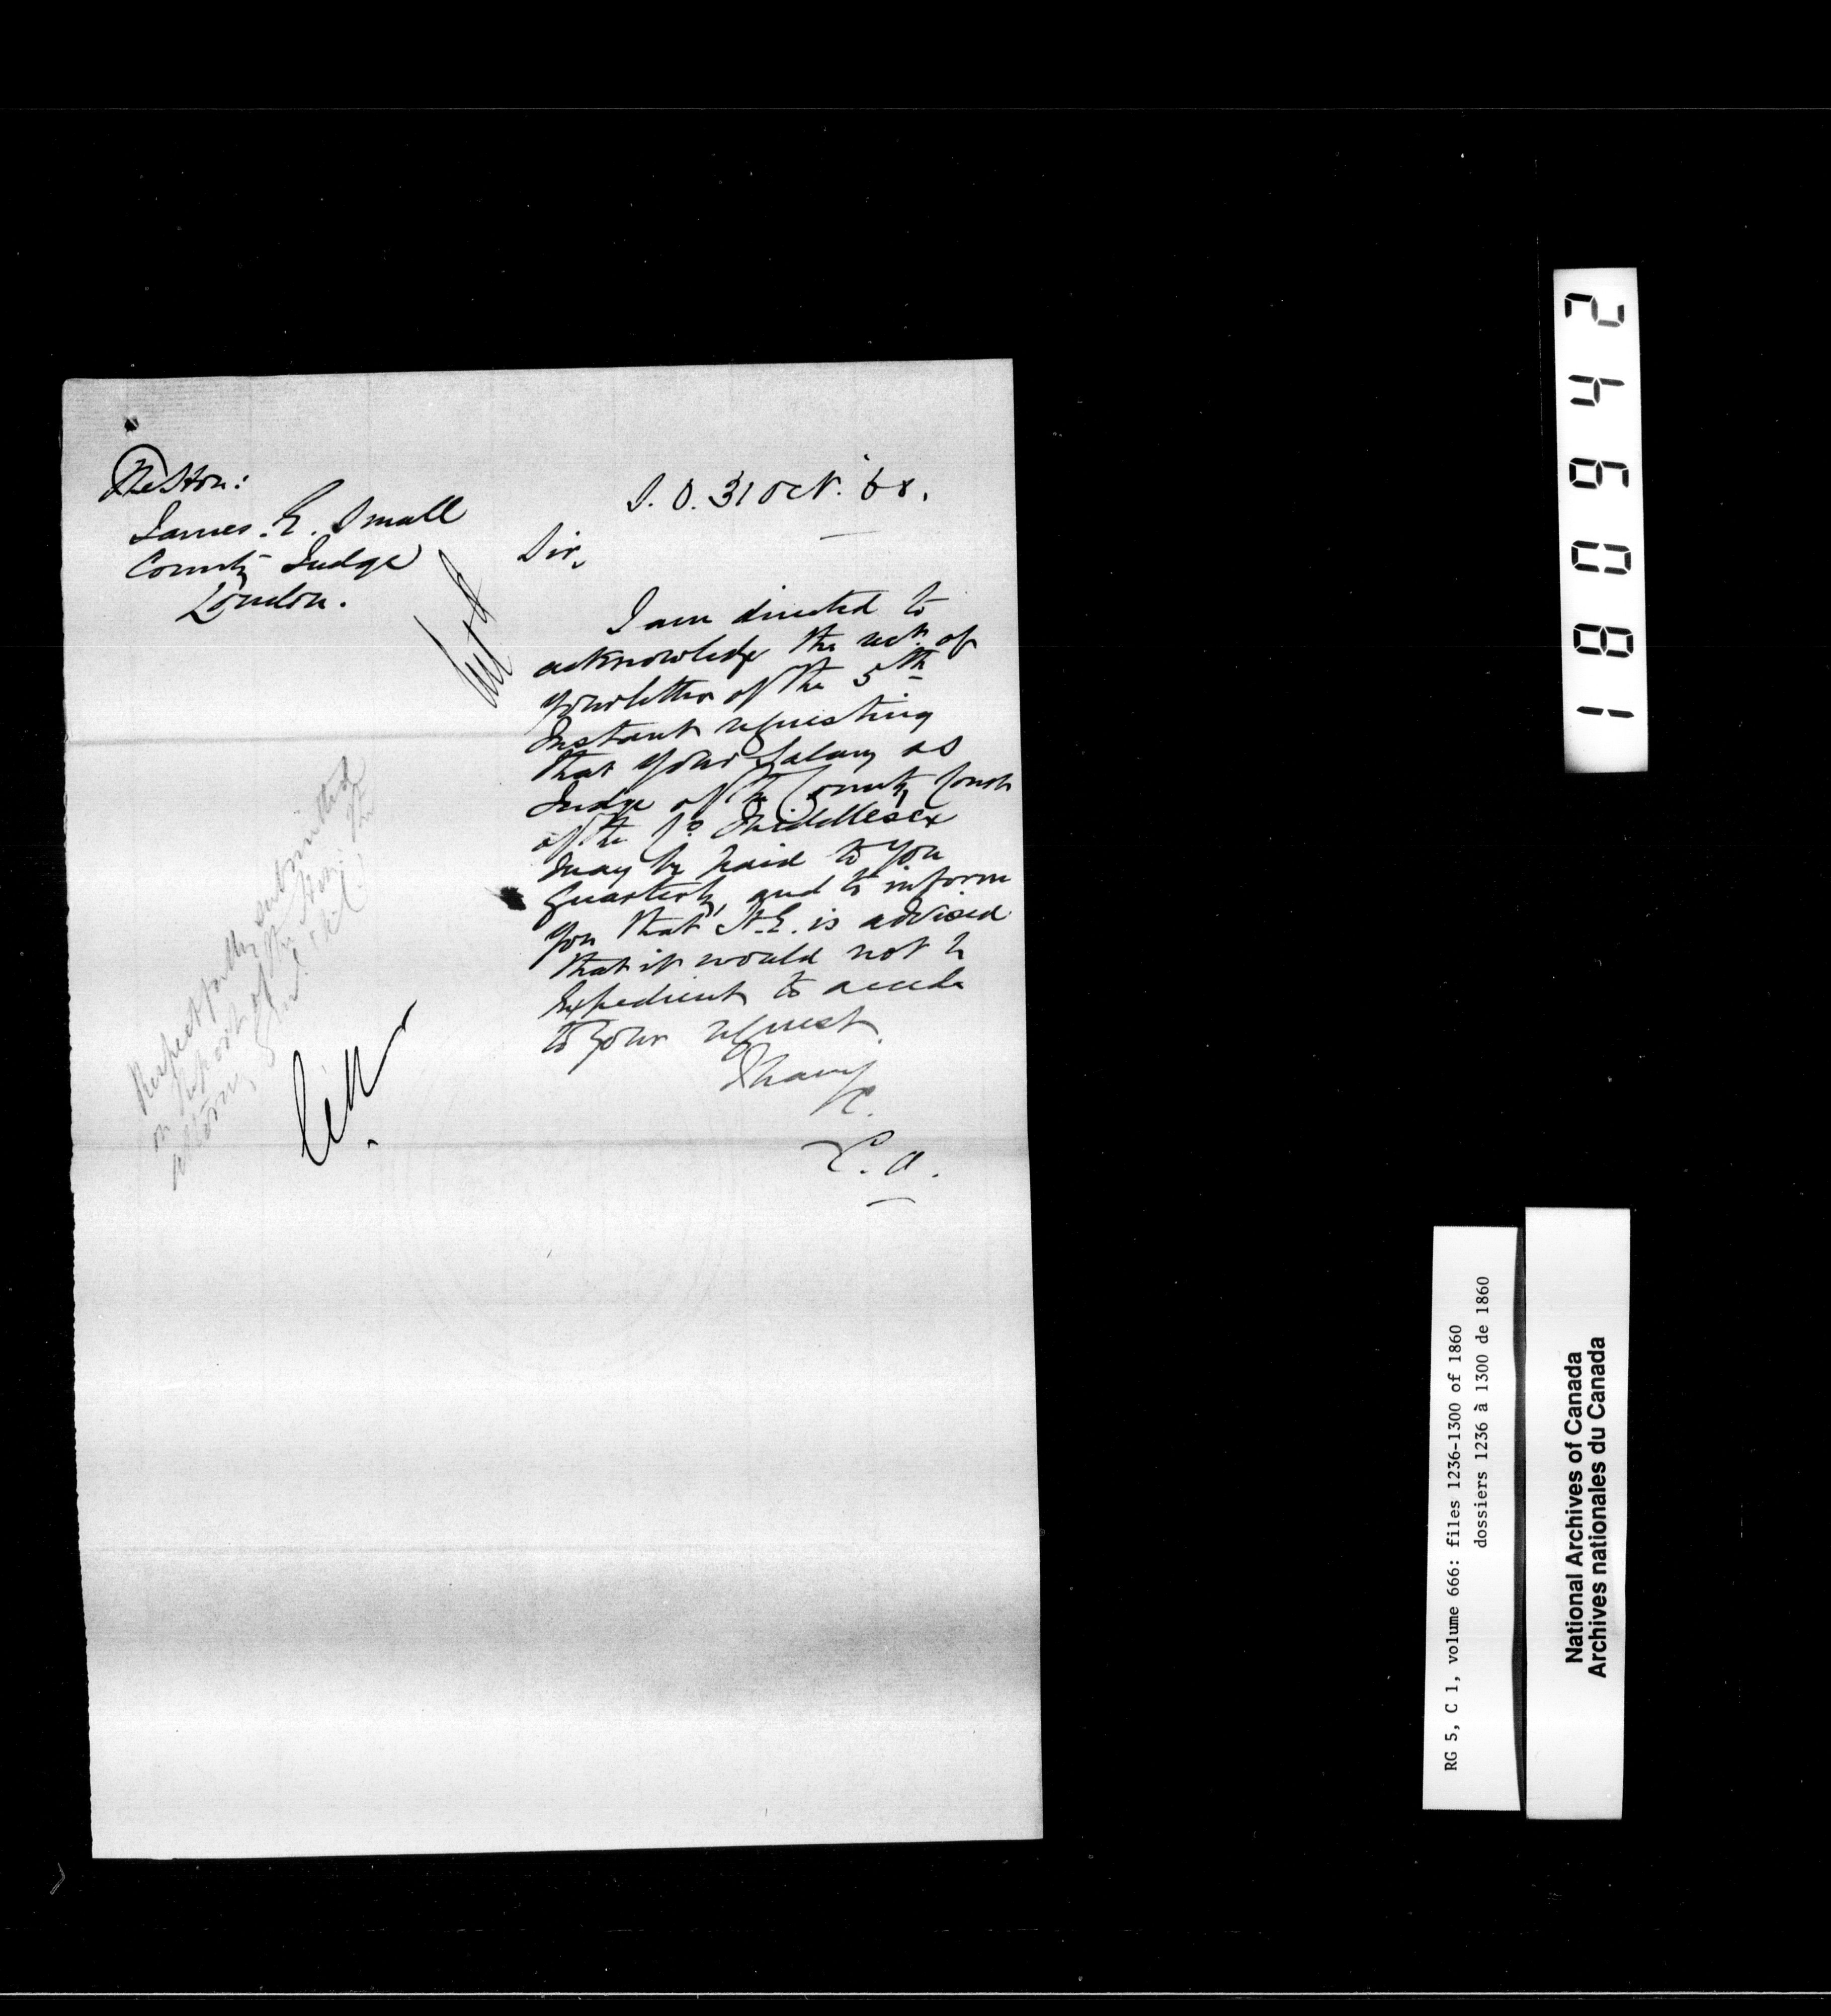 The Hon:
James. E. Small
County Judge
London.
S. O. 31 Oct. 60.
Sir,
I am directed to
acknowledge the rect. of
your letter of the 5th
Instant requesting
that your Salary as
Judge of the County Court
of the Co. Middlesex
may be paid to you
Quarterly, and to inform
you that H.E. is advised
that it would not be
Expedient to accede
to your request.
I have
&c.
C. A.
Respectfully submitted
on Report of the Hon: the
Attorney Genl.
180942
RG 5, C 1, volume 666: files 1236-1300 of 1860
dossiers 1236 à 1300 de 1860
National Archives of Canada
Archives nationales du Canada